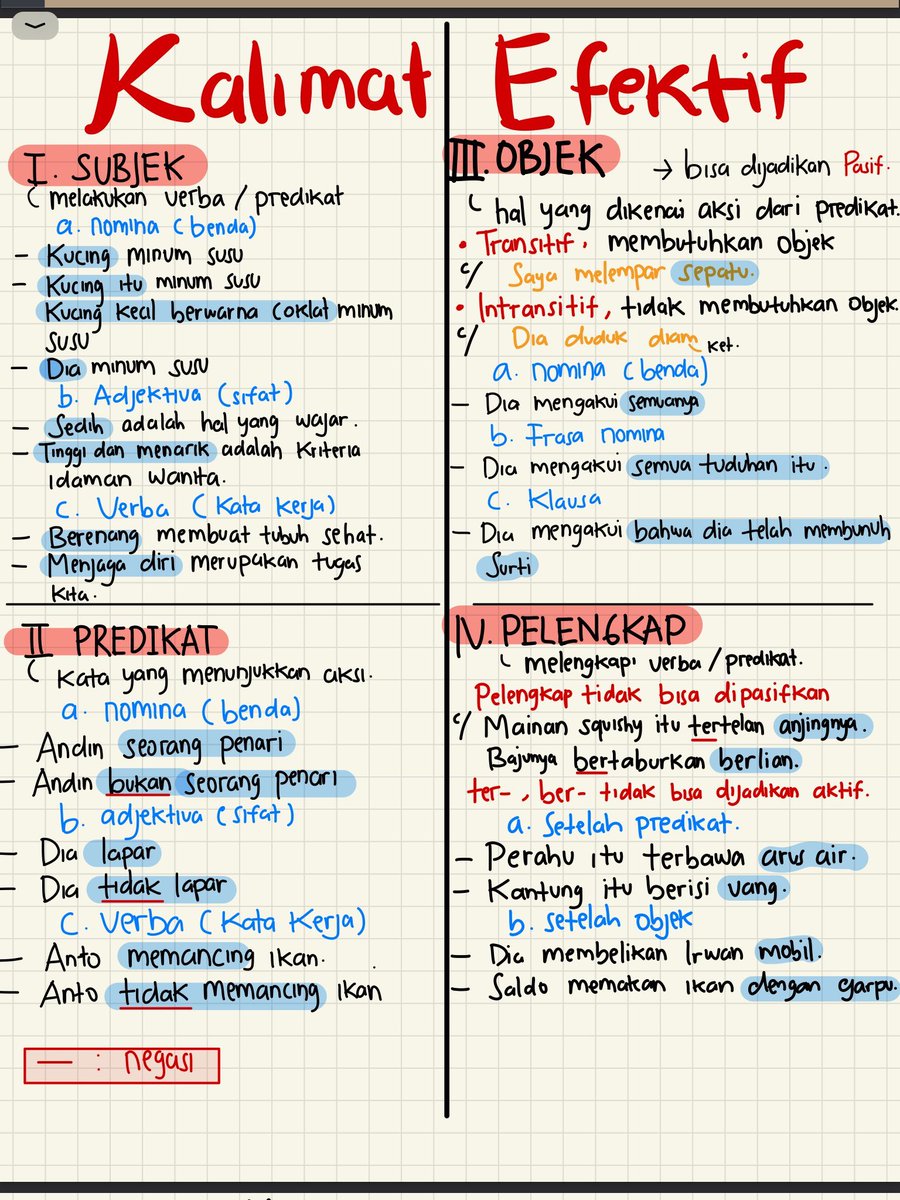 Kalimat Efektif
I. SUBJEK
melakukan verba / predikat
a. nomina (benda)
- Kucing minum susu
- Kucing itu minum susu
Kucing kecil berwarna coklat minum
susu
- Dia minum susu
b. Adjektiva (sifat)
- Sedih adalah hal yang wajar.
- Tinggi dan menarik adalah kriteria
idaman wanita.
c. Verba (kata kerja)
- Berenang membuat tubuh sehat.
- Menjaga diri merupakan tugas
kita.
II PREDIKAT
Kata yang menunjukkan aksi.
a. nomina (benda)
- Andin seorang penari
- Andin bukan seorang penari
b. adjektiva (sifat)
- Dia lapar
- Dia tidak lapar
c. Verba (kata kerja)
- Anto memancing ikan.
- Anto tidak memancing ikan
— : negasi
III. OBJEK → bisa dijadikan Pasif.
hal yang dikenai aksi dari predikat.
• Transitif, membutuhkan objek
c/ Saya melempar sepatu.
• Intransitif, tidak membutuhkan objek.
c/ Dia duduk diam ket.
a. nomina (benda)
- Dia mengakui semuanya
b. Frasa nomina
- Dia mengakui semua tuduhan itu.
c. Klausa
- Dia mengakui bahwa dia telah membunuh
Surti
IV. PELENGKAP
melengkapi verba / predikat.
Pelengkap tidak bisa dipasifkan
c/ Mainan squishy itu tertelan anjingnya.
Bajunya bertaburkan berlian.
ter-, ber- tidak bisa dijadikan aktif.
a. Setelah predikat.
- Perahu itu terbawa arus air.
- Kantung itu berisi uang.
b. setelah objek
- Dia membelikan Irwan mobil.
- Saldo memakan ikan dengan garpu.